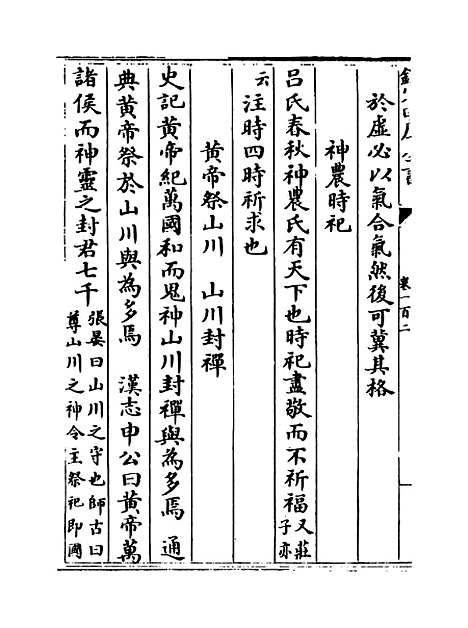 欽定四庫全書
卷一百二
於虛必以氣合氣然後可冀其格
神農時祀
呂氏春秋神農氏有天下也時祀盡敬而不祈福又莊子亦
云注時四時祈求也
黃帝祭山川 山川封禪
史記黃帝紀萬國和而鬼神山川封禪與為多焉 通
典黃帝祭於山川與為多焉 漢志申公曰黃帝萬
諸侯而神靈之封君七千張晏曰山川之守也師古曰尊山川之神令主祭祀即國